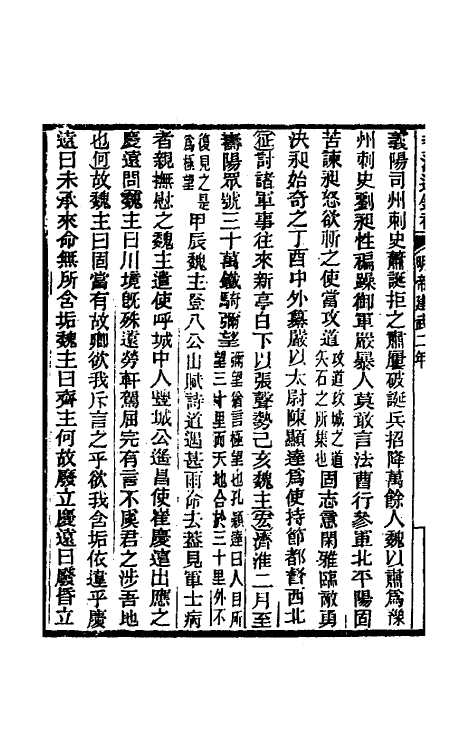 義陽司州刺史蕭誕拒之肅屢破誕兵招降萬餘人魏以肅爲豫
州刺史劉昶性褊躁御軍嚴暴人莫敢言法曹行參軍北平陽固
苦諫昶怒欲斬之使當攻道攻道攻城之道矢石之所集也固志意閑雅臨敵勇
決昶始奇之丁酉中外纂嚴以太尉陳顯達爲使持節都督西北
征討諸軍事往來新亭白下以張聲勢己亥魏主濟淮二月至
壽陽眾號三十萬鐵騎彌望彌望猶言極望也孔穎達曰人目所望三十里而天地合於三十里外不
復見之是爲極望甲辰魏主登八公山賦詩道遇甚雨命去蓋見軍士病
者親撫慰之魏主遣使呼城中人豐城公遙昌使崔慶遠出應之
慶遠問魏主曰川境旣殊遠勞軒駕屈完有言不虞君之涉吾地
也何故魏主曰固當有故卿欲我斥言之乎欲我含垢依違乎慶
遠曰未承來命無所含垢魏主曰齊主何故廢立慶遠曰廢昏立
明帝建武二年